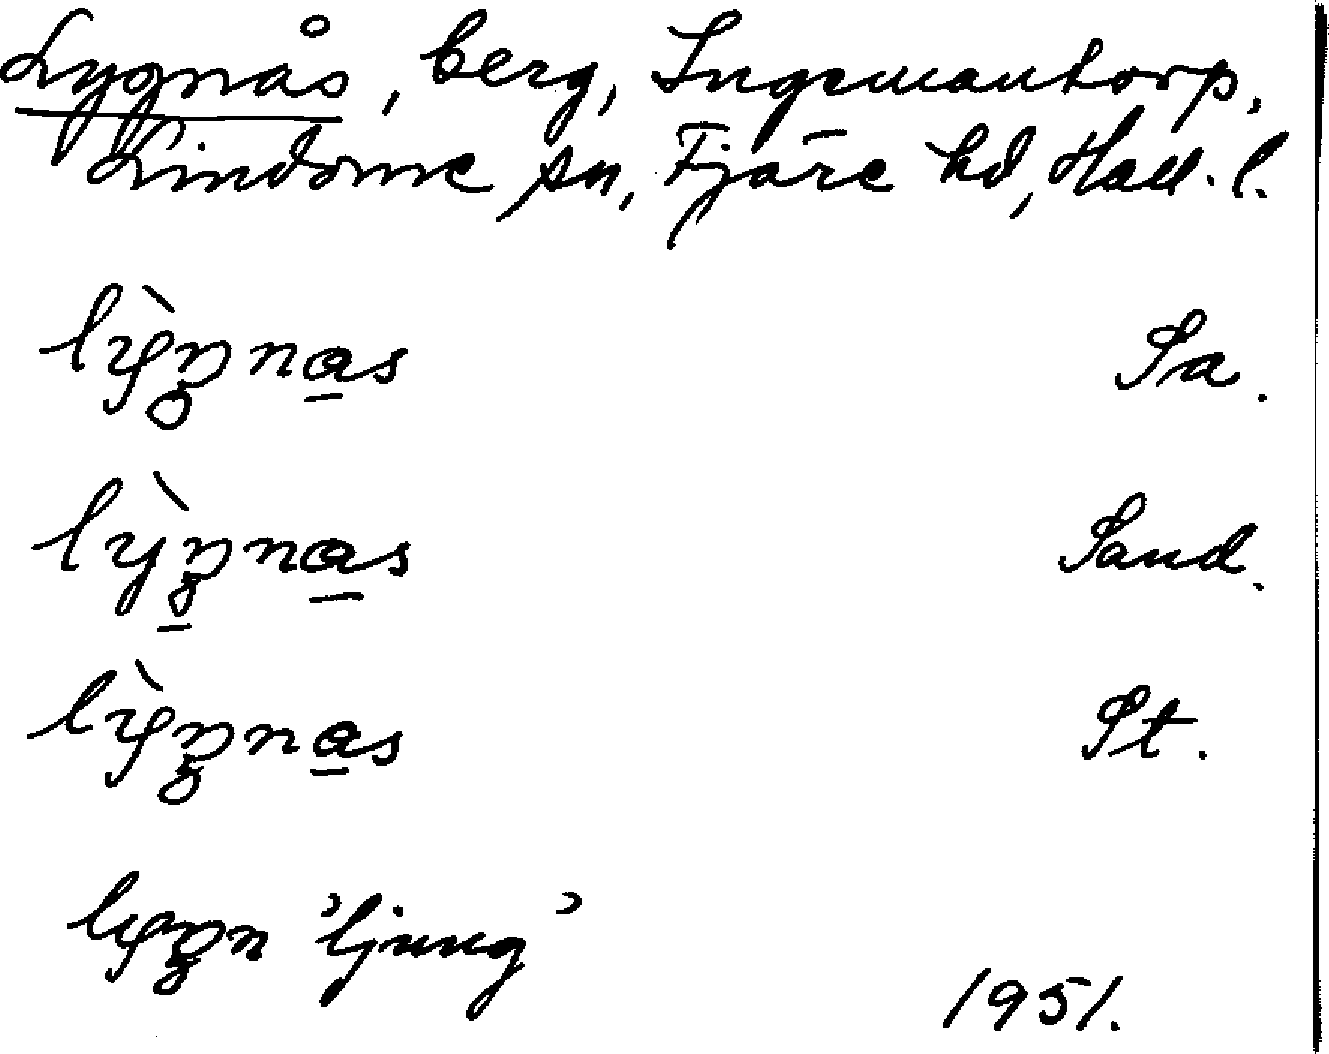 Lygnås, berg, Ingemantorp,
Lindome sn, Fjäre hd, Hall. l.
lỳŋnas Sa.
lỳŋnas Sand.
lỳŋnas St.
lyŋn 'ljung'
1951.